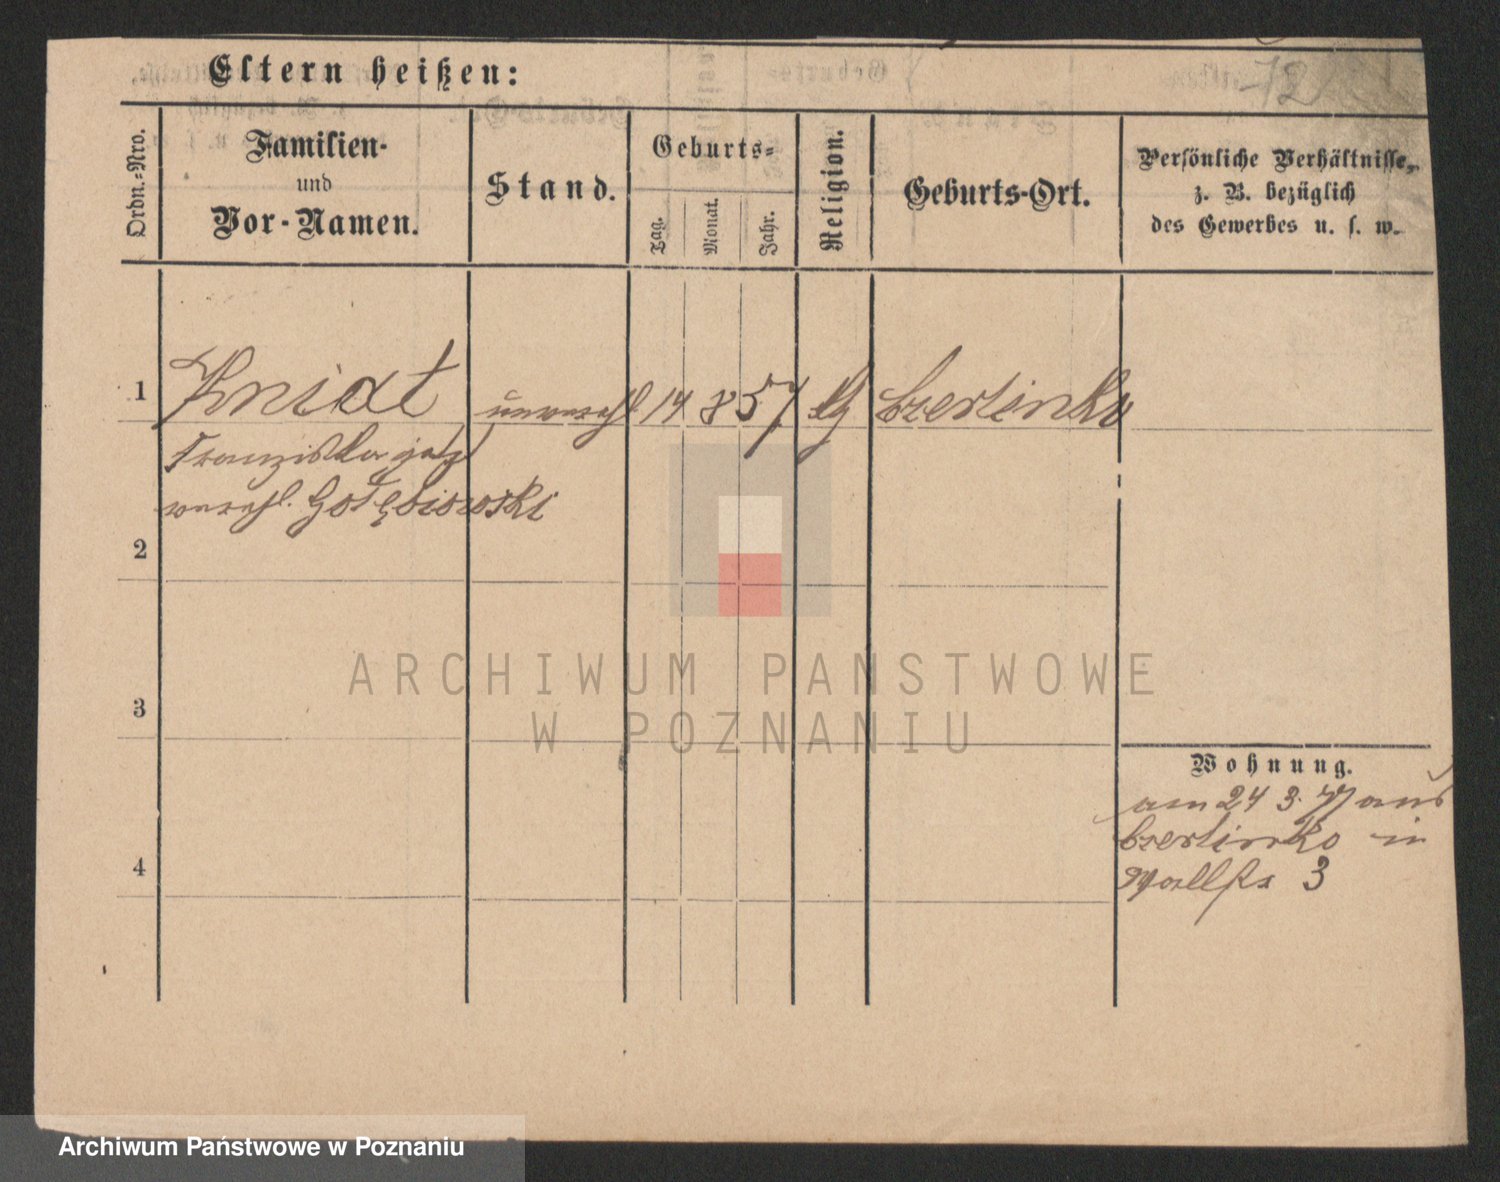 72
Eltern heißen:
Ordn.-Nro.
Familien-
und
Vor-Namen.
Stand.
Geburts-
Tag.
Monat.
Jahr.
Religion.
Geburts-Ort.
Persönliche Verhältnisse,
z. B. bezüglich
des Gewerbes u. s. w.
1 Kniat unverehl. 14 8 57 Czerlinko
Franziska jetzt
verehl. Gołębiowski
2
3
4
Wohnung.
am 24 3. 77 aus
Czerlinko in
Wallstr 3
ARCHIWUM PAŃSTWOWE
W POZNANIU
Archiwum Państwowe w Poznaniu